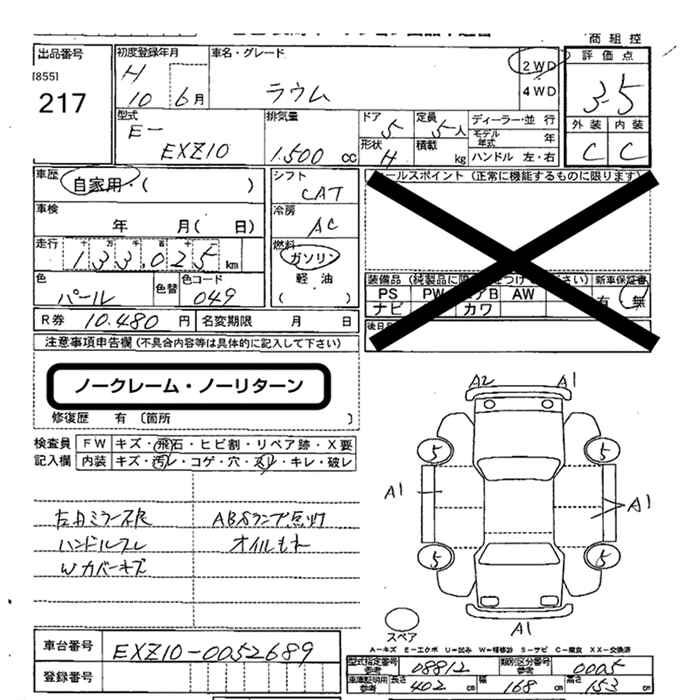 商 組 控
出品番号
[855]
217
初度登録年月
H
10 6月
車名・グレード
ラウム
2WD
4WD
評価点
3.5
外装 内装
C C
型式
E-
EXZ10
排気量
1.500 cc
ドア
5
定員
5人
形状
H
積載
kg
ディーラー・並行
モデル年式 年
ハンドル 左・右
車歴
自家用・( )
シフト
CAT
車検
年 月( 日)
冷房
AC
走行
十 万 千 百 十 一
133,025 km
燃料
ガソリン
軽油
( )
色
パール
色替
色コード
049
R券 10.480 円
名変期限 月 日
セールスポイント(正常に機能するものに限ります)
新車保証書
有 無
PS PW エアB AW
ナビ カワ
後日
注意事項申告欄(不具合内容等は具体的に記入して下さい)
ノークレーム・ノーリターン
修復歴 有 〔箇所 〕
検査員記入欄
FW キズ・飛石・ヒビ割・リペア跡・X要
内装 キズ・汚レ・コゲ・穴・スレ・キレ・破レ
左右ミラー不良
ABSランプ点灯
ハンドルスレ
オイルもれ
Wカバーキズ
A2 A1
5 5
A1 A1
5 5
A1
スペア
A-キズ E-エクボ U-凹み W-補修跡 S-サビ C-腐食 XX-交換済
車台番号 EXZ10-0052689
登録番号
型式指定番号 参考 08812
類別区分番号 参考 0005
車庫証明用 参考 長さ 402 cm 幅 168 cm 高さ 153 cm